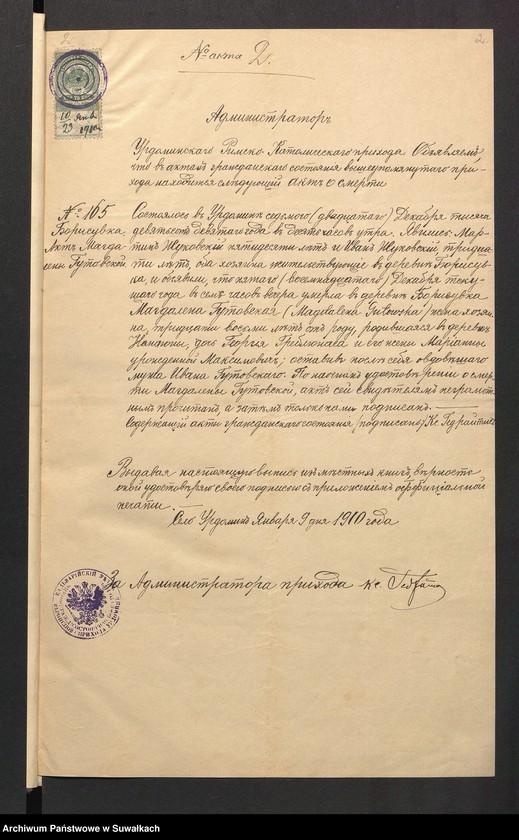 2.
2.
№ акта 2.
10 Янв
23 1910
Администраторъ
Урдоминскаго Римско-Католическаго прихода Объявляетъ
что въ актахъ гражданскаго состоянія вышеупомянутаго при-
хода находится слѣдующій актъ о смерти
№ 165
Борисувка
Актъ Магда-
лены Гутовской
Состоялось въ Урдоминѣ седьмого (двадцатаго) Декабря тысяча
девятьсотъ девятаго года въ десять часовъ утра. Явились Мар-
тинъ Жуковскій пятидесяти лѣтъ и Иванъ Жуковскій тридца-
ти лѣтъ, оба хозяина жительствующіе въ деревнѣ Борисув-
ка, и объявили, что пятаго (восемнадцатаго) Декабря теку-
щаго года въ семь часовъ вечера умерла въ деревнѣ Борисувка
Магдалена Гутовская (Magdalena Gutowska) жена хозяи-
на, тридцати восьми лѣтъ отъ роду, родившаяся въ деревнѣ
дочь Георгія и его жены Маріанны
урожденной Максимовичъ; оставивъ послѣ себя овдовѣвшаго
мужа Ивана Гутовскаго. По наочномъ удостовѣреніи о смер-
ти Магдалены Гутовской, актъ сей свидѣтелямъ неграмот-
нымъ прочитанъ, а затѣмъ только нами подписанъ.
Содержащій акты гражданскаго состоянія (подписано) Кс
Выдавая настоящую выпись изъ мѣстныхъ книгъ, вѣрность
оной удостовѣряю своего подписью съ приложеніемъ оффиціальной
печати.
Село Урдоминъ Января 9 дня 1910 года
За Администратора прихода Кс
Archiwum Państwowe w Suwałkach